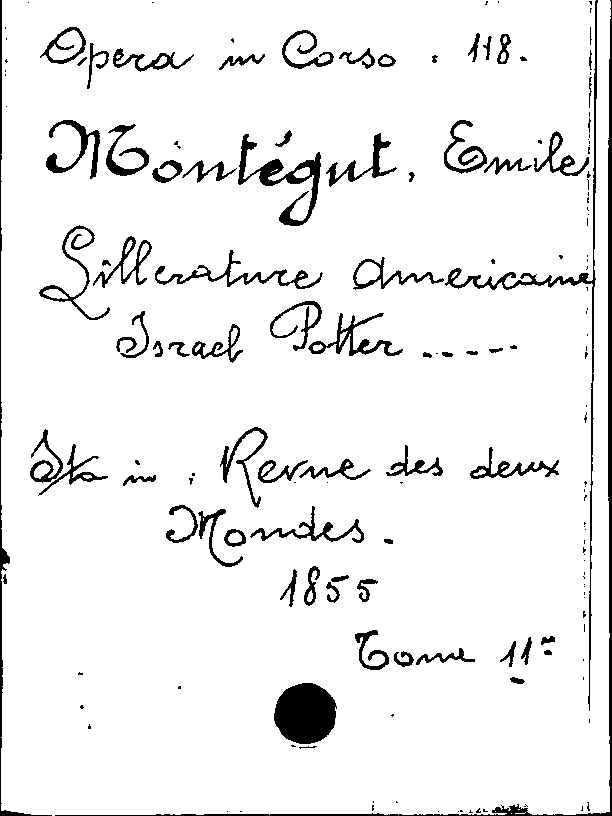 Opera in Corso . 118.
Montégut, Emile
Litterature Americaine
Israel Potter .....
Sta in : Revue des deux
Mondes.
1855
Tome 11me